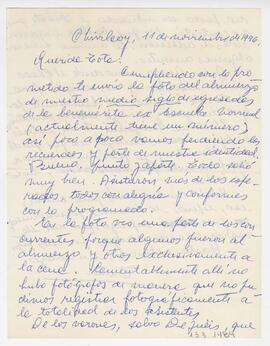 Chivilcoy, 11 de noviembre de 1996.
Querido Tota:
Cumpliendo con lo pro
metido te envío la foto del almuerzo
de nuestro medio siglo de egresados
de la benemérita ex Escuela Normal
(actualmente tiene un número)
así poco a poco vamos perdiendo los
recuerdos y parte de nuestra identidad.
Bueno, punto aparte. Todo salió
muy bien. Asistieron más de los espe-
rados, todos con alegría y conformes
con lo programado.
En la foto ves una parte de los con
currentes, porque algunos fueron al
almuerzo y otros exclusivamente a
la cena. Lamentablemente allí no
hubo fotógrafos de manera que no pu
dimos registrar fotográficamente a
la totalidad de los asistentes
De los varones, salvo que